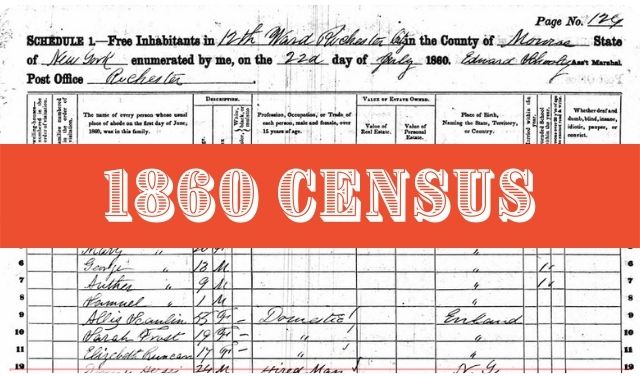 Page No. 124
SCHEDULE 1.—Free Inhabitants in 12th Ward Rochester City in the County of Monroe State
of New York enumerated by me, on the 22d day of July 1860. Edward Ass't Marshal.
Post Office Rochester
DESCRIPTION.
VALUE OF ESTATE OWNED.
The name of every person whose usual place of abode on the first day of June, 1860, was in this family.
Profession, Occupation, or Trade of each person, male and female, over 15 years of age.
Value of Real Estate.
Value of Personal Estate.
Place of Birth, Naming the State, Territory, or Country.
Whether deaf and dumb, blind, insane, idiotic, pauper, or convict.
1860 CENSUS
Mary " "
6 George " 13 M " 1 6
7 Arther " 9 M " 1 7
8 Samuel " 1 M " 8
9 Domestic England 9
10 Sarah Frost 19 " " 10
11 Elizabeth Runcan 17 " " 11
12 24 M Hired Man N.Y. 12